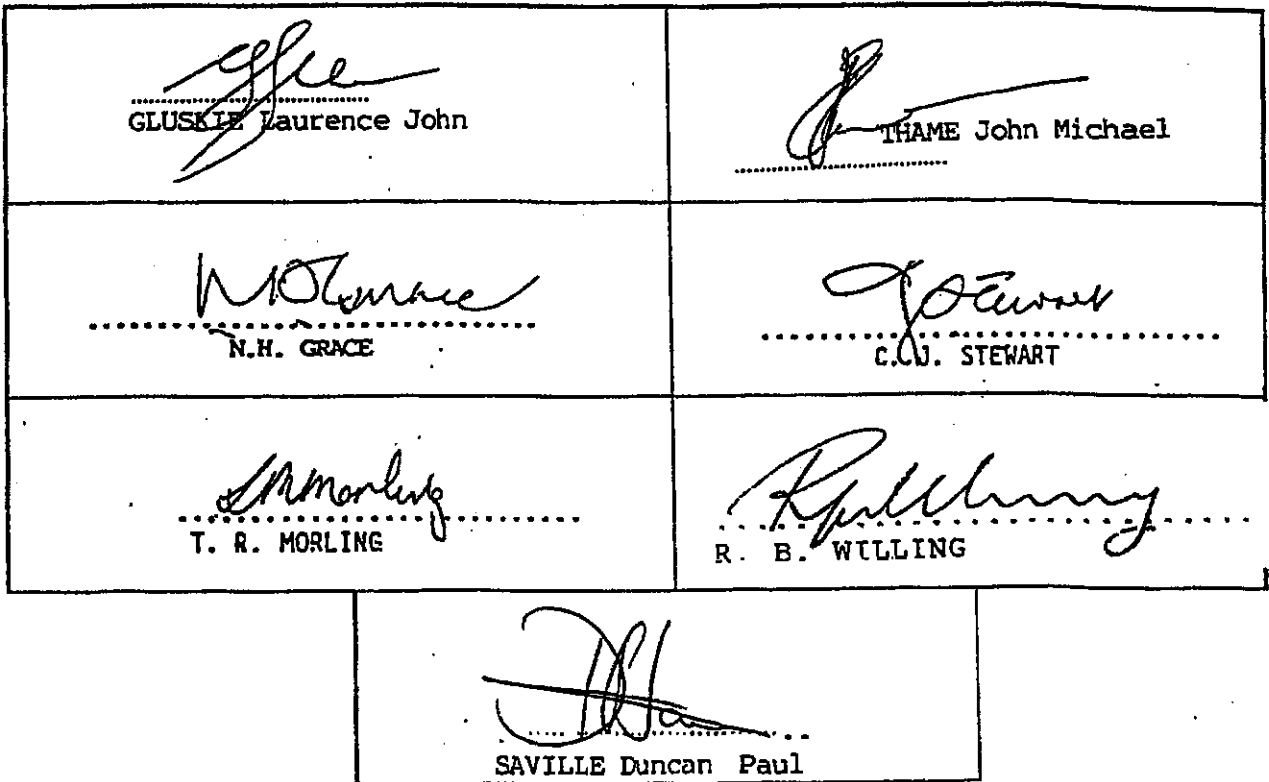 GLUSKIE Laurence John
THAME John Michael
N.H. GRACE
C.C.J. STEWART
T. R. MORLING
R. B. WILLING
SAVILLE Duncan Paul